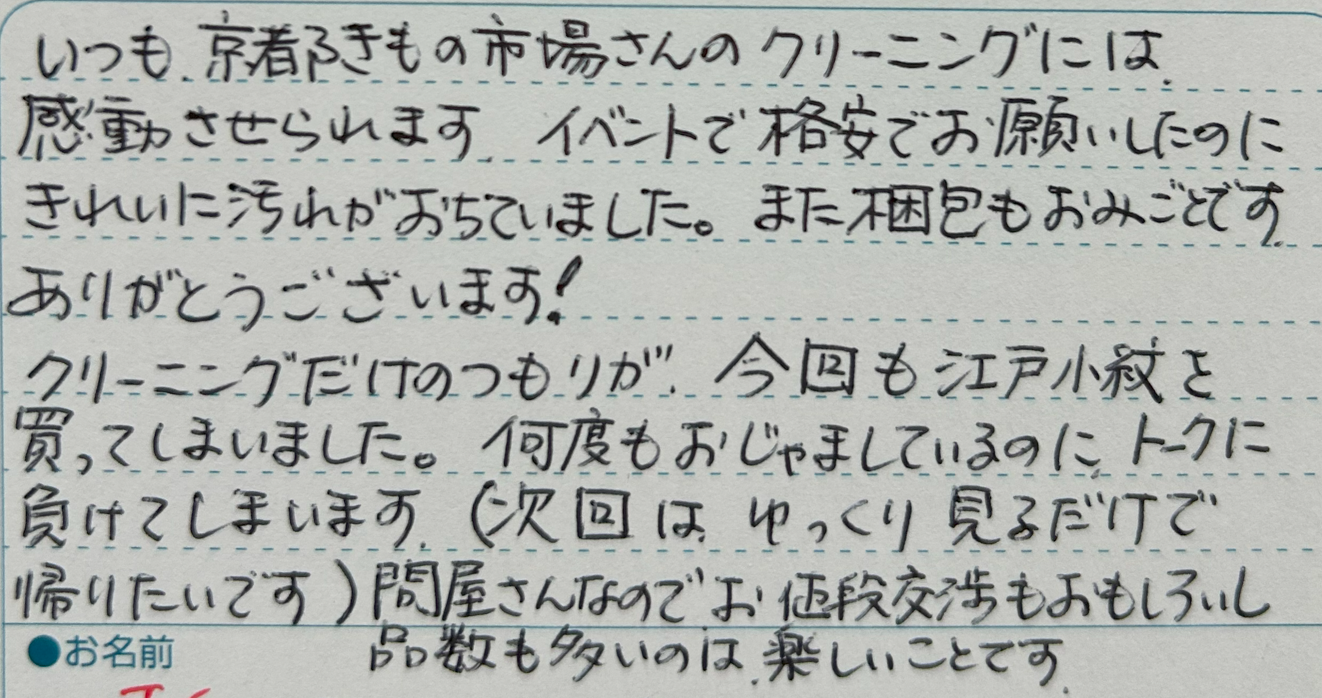 いつも、京都きもの市場さんのクリーニングには、
感動させられます。イベントで格安でお願いしたのに
きれいに汚れがおちていました。また梱包もおみごとです。
ありがとうございます!
クリーニングだけのつもりが、今回も江戸小紋を
買ってしまいました。何度もおじゃましているのに、トークに
負けてしまいます。(次回は、ゆっくり見るだけで
帰りたいです)問屋さんなのでお値段交渉もおもしろいし
品数も多いのは、楽しいことです。
●お名前